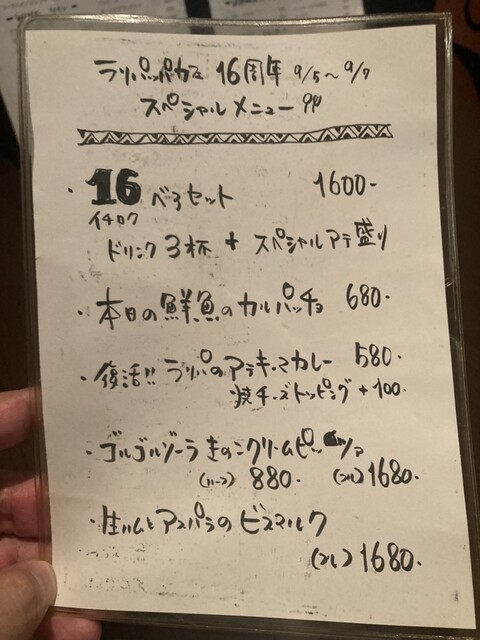 ラリパッパカス 16周年 9/5〜9/7
スペシャルメニュー
・16べろセット 1600-
イチロク
ドリンク3杯 + スペシャルアテ盛り
・本日の鮮魚のカルパッチョ 680-
・復活!! ラリパのアテキーマカレー 580-
焼チーズトッピング +100-
・ゴルゴンゾーラきのこクリームピッツァ
(ハーフ) 880- (フル) 1680-
・生ハムとアスパラのビスマルク
(フル) 1680-